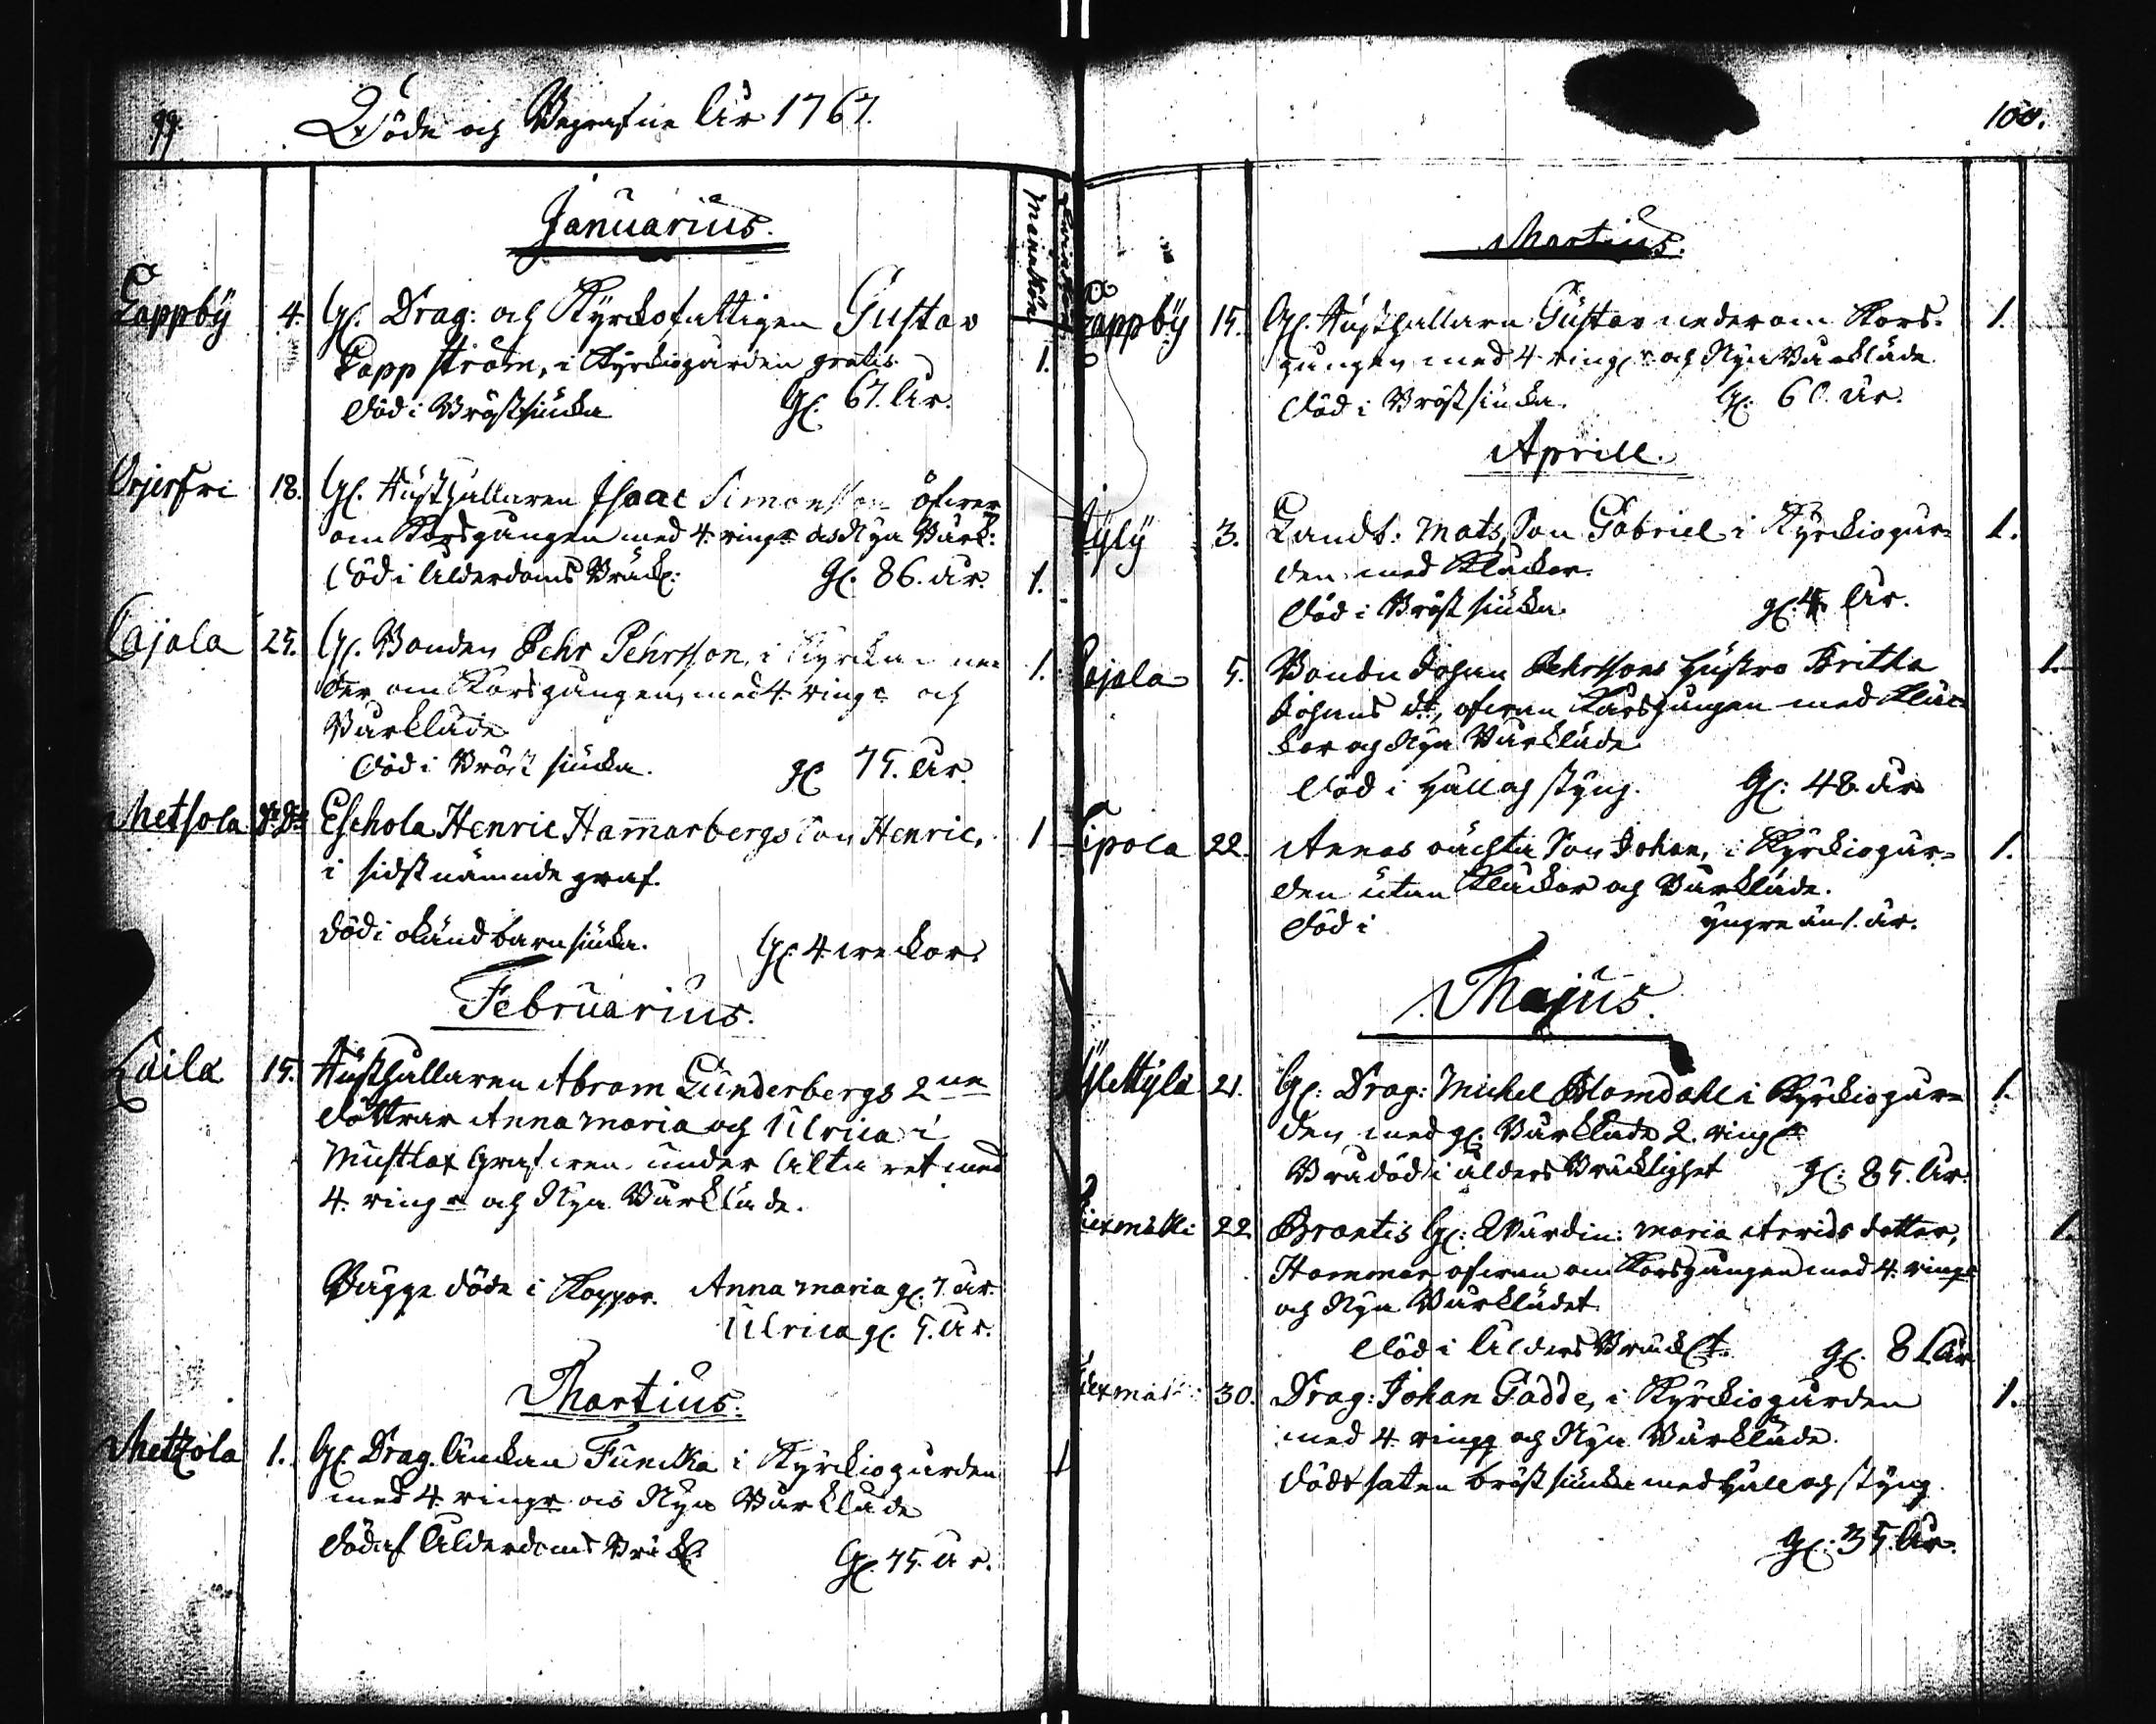 99.
Döde och Begrafne År 1767.
Mankön.
Januarius.
Lappby 4. Gl. Drag: och Kyrckofattigen Gustav
Lappström, i Kyrckiogården gratis. 1.
död i Bröstsiucka Gl: 67. år.
18. Gl. Hushållaren Isaac Simonsson öfwer
om Korsgången med 4. ringr och Nya Bårk:
död i Ålderdoms Bräckl: Gl: 86. år. 1.
Cajala 25. Gl. Bonden Pehr Pehrsson, i Kyrckan ne- 1.
der om Korsgången, med 4. ringr och
Bårkläde
död i Bröst siucka. gl 75. år.
Metsola Do Do Eschola Henric Hamarbergs Son Henric, 1
i sidstnämnde graf.
död i okänd barnsiucka. Gl: 4 weckor.
Februarius.
Laila 15. Hushållaren Abram Lunderbergs 2ne
döttrar Anna Maria och Ulrica i
Graf wen under Alta ret med
4. ringr och Nya Bårkläde.
Bägge döde i Koppor. Anna Maria gl: 7. år.
Ulrica gl. 5. år.
Martius.
Metzola 1. Gl. Drag. Änckan Funcka i Kyrckiogården 1
med 4. ringr och Nya Bårkläde
död af Ålderdoms Bräckl Gl. 75. år.
100.
Martius.
Lappby 15. Gl. Hushållaren Gustav nederom Kors- 1.
gången med 4 ringr och Nya Bårkläde
död i Bröstsiucka. Gl: 60. år.
Aprill.
3. Landb: Mats, Son Gabriel i Kyrckiogår- 1.
den med Klåckor.
död i Bröstsiucka gl: 4. år.
Cajala 5. Bonden Johan Pehrssons Hustro Britha 1.
Johans dr, ofwan Korsgången med Klåc-
kor och Nya Bårkläde
död i Håll och styng. Gl: 48. år
22. Annas oächta Son Johan, i Kyrckiogår- 1.
den utan Klåckor och Bårkläde.
död i yngre än 1. år.
Majus.
21. Gl: Drag: Michel Blomdahl i Kyrckiogår- 1.
den med gl. Bårkläde 2. ring
Brådöd i ålders Bräcklighet gl: 85. år.
22. Brantis Gl: Wärdin: Maria Arvids dotter, 1.
Hammar ofwan om Korsgången med 4. ringr
och Nya Bårklädet
död i Ålders Bräcklt. gl. 81 år
30. Drag: Johan Gädde, i Kyrckiogården 1.
med 4. ringr och Nya Bårkläde.
död i saten bröstsiucka med Håll och styng.
gl: 35. år.